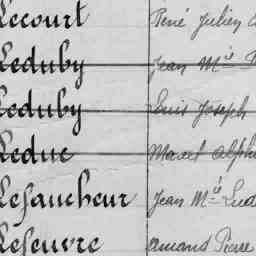 Lecourt René Julien
Leduby Jean Mie
Leduby Louis Joseph
Leduc Marcel Alph
Lefaucheur Jean Mie Lud
Lefeuvre Amand Pierre